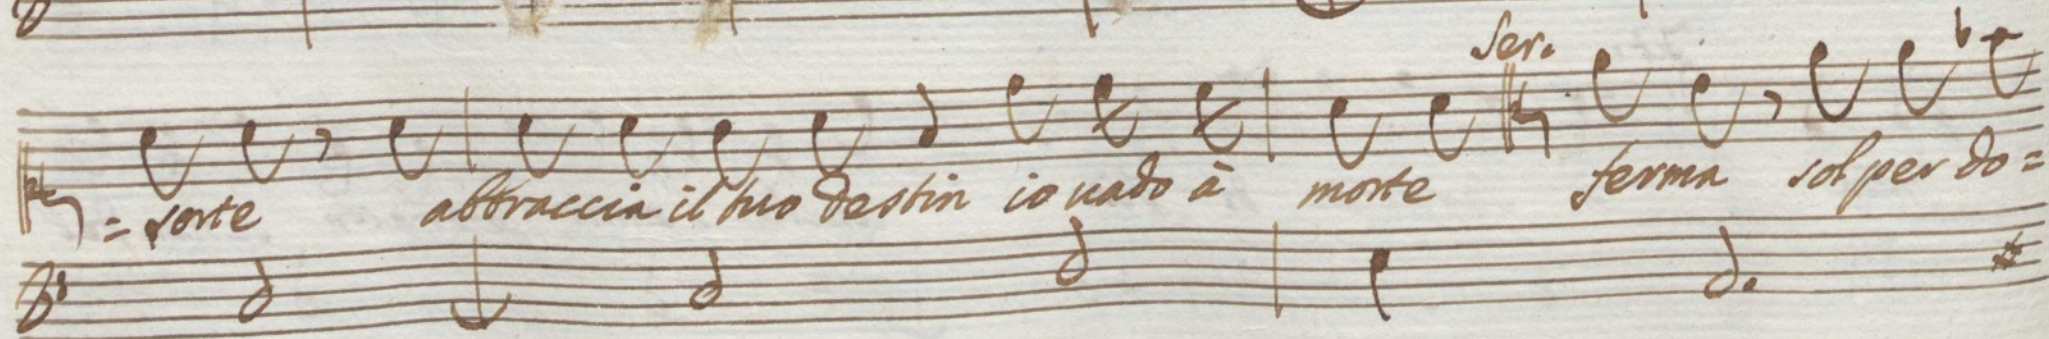 Ser.
= sorte abbraccia il tuo destin io uado à morte ferma sol per do=